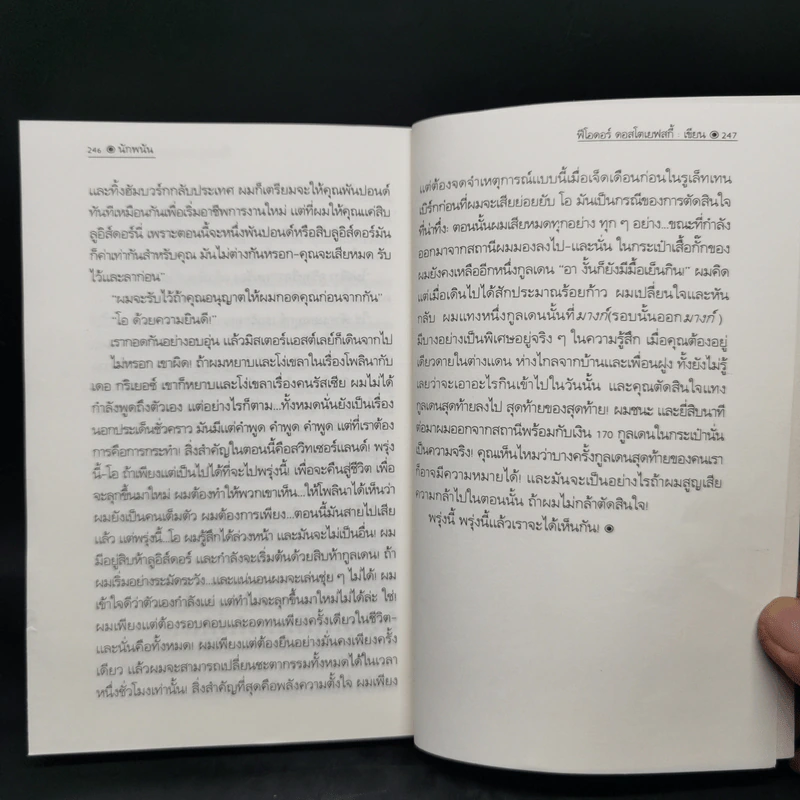 246 ๏ นักพนัน
และทิ้งฮัมบวร์กกลับประเทศ ผมก็เตรียมจะให้คุณพันปอนด์
ทันทีเหมือนกันเพื่อเริ่มอาชีพการงานใหม่ แต่ที่ผมให้คุณแค่สิบ
ลูอิส์ดอร์นี่ เพราะตอนนี้จะหนึ่งพันปอนด์หรือสิบลูอิส์ดอร์มัน
ก็ค่าเท่ากันสำหรับคุณ มันไม่ต่างกันหรอก-คุณจะเสียหมด รับ
ไว้และลาก่อน"
"ผมจะรับไว้ถ้าคุณอนุญาตให้ผมกอดคุณก่อนจากกัน"
"โอ ด้วยความยินดี!"
เรากอดกันอย่างอบอุ่น แล้วมิสเตอร์แอสต์เลย์ก็เดินจากไป
ไม่หรอก เขาผิด! ถ้าผมหยาบและโง่เขลาในเรื่องโพลินากับ
เดอ กริเยอซ์ เขาก็หยาบและโง่เขลาเรื่องคนรัสเซีย ผมไม่ได้
กำลังพูดถึงตัวเอง แต่อย่างไรก็ตาม...ทั้งหมดนั่นยังเป็นเรื่อง
นอกประเด็นชั่วคราว มันมีแต่คำพูด คำพูด คำพูด แต่ที่เราต้อง
การคือการกระทำ! สิ่งสำคัญในตอนนี้คือสวิทเซอร์แลนด์! พรุ่ง
นี้-โอ ถ้าเพียงแต่เป็นไปได้ที่จะไปพรุ่งนี้! เพื่อจะคืนสู่ชีวิต เพื่อ
จะลุกขึ้นมาใหม่ ผมต้องทำให้พวกเขาเห็น...ให้โพลินาได้เห็นว่า
ผมยังเป็นคนเต็มตัว ผมต้องการเพียง...ตอนนี้มันสายไปเสีย
แล้ว แต่พรุ่งนี้...โอ ผมรู้สึกได้ล่วงหน้า และมันจะไม่เป็นอื่น! ผม
มีอยู่สิบห้าลูอิส์ดอร์ และกำลังจะเริ่มต้นด้วยสิบห้ากูลเดน! ถ้า
ผมเริ่มอย่างระมัดระวัง...และแน่นอนผมจะเล่นชุ่ย ๆ ไม่ได้! ผม
เข้าใจดีว่าตัวเองกำลังแย่ แต่ทำไมจะลุกขึ้นมาใหม่ไม่ได้ล่ะ ใช่!
ผมเพียงแต่ต้องรอบคอบและอดทนเพียงครั้งเดียวในชีวิต-
และนั่นคือทั้งหมด! ผมเพียงแต่ต้องยืนอย่างมั่นคงเพียงครั้ง
เดียว แล้วผมจะสามารถเปลี่ยนชะตากรรมทั้งหมดได้ในเวลา
หนึ่งชั่วโมงเท่านั้น! สิ่งสำคัญที่สุดคือพลังความตั้งใจ ผมเพียง
ฟีโอดอร์ ดอสโตเยฟสกี้ : เขียน ๏ 247
แต่ต้องจดจำเหตุการณ์แบบนี้เมื่อเจ็ดเดือนก่อนในรูเล็ทเทน
เบิร์กก่อนที่ผมจะเสียย่อยยับ โอ มันเป็นกรณีของการตัดสินใจ
ที่น่าทึ่ง: ตอนนั้นผมเสียหมดทุกอย่าง ทุก ๆ อย่าง...ขณะที่กำลัง
ออกมาจากสถานีผมมองลงไป-และนั่น ในกระเป๋าเสื้อกั๊กของ
ผมยังคงเหลืออีกหนึ่งกูลเดน "อา งั้นก็ยังมีมื้อเย็นกิน!" ผมคิด
แต่เมื่อเดินไปได้สักประมาณร้อยก้าว ผมเปลี่ยนใจและหัน
กลับ ผมแทงหนึ่งกูลเดนนั้นที่มางก์(รอบนั้นออกมางก์)
มีบางอย่างเป็นพิเศษอยู่จริง ๆ ในความรู้สึก เมื่อคุณต้องอยู่
เดียวดายในต่างแดน ห่างไกลจากบ้านและเพื่อนฝูง ทั้งยังไม่รู้
เลยว่าจะเอาอะไรกินเข้าไปในวันนั้น และคุณตัดสินใจแทง
กูลเดนสุดท้ายลงไป สุดท้ายของสุดท้าย! ผมชนะ และยี่สิบนาที
ต่อมาผมออกจากสถานีพร้อมกับเงิน 170 กูลเดนในกระเป๋านั่น
เป็นความจริง! คุณเห็นไหมว่าบางครั้งกูลเดนสุดท้ายของคนเรา
ก็อาจมีความหมายได้! และมันจะเป็นอย่างไรถ้าผมสูญเสีย
ความกล้าไปในตอนนั้น ถ้าผมไม่กล้าตัดสินใจ!
พรุ่งนี้ พรุ่งนี้แล้วเราจะได้เห็นกัน! ๏